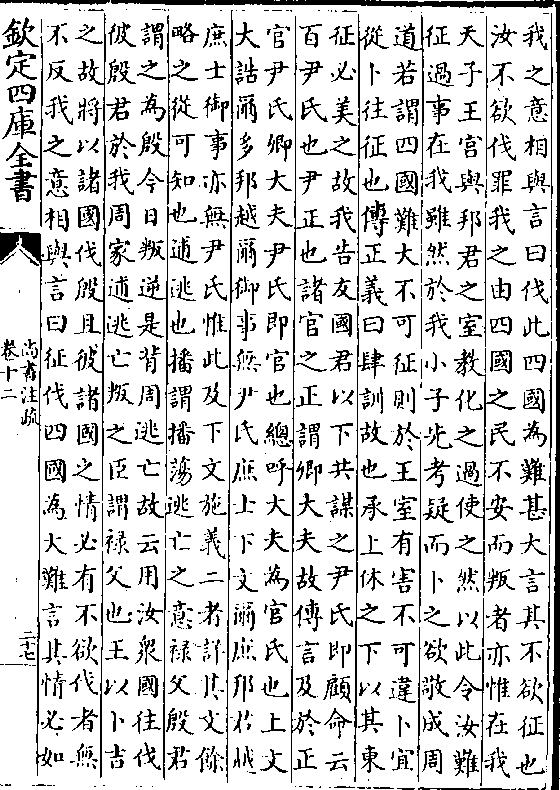 我之意相與言曰伐此四國為難甚大言其不欲征也
汝不欲伐罪我之由四國之民不安而叛者亦惟在我
天子王宫與邦君之室教化之過使之然以此令汝難
征過事在我雖然於我小子先考疑而卜之欲敬成周
道若謂四國難大不可征則於王室有害不可違卜宜
從卜往征也傳正義曰肆訓故也承上休之下以其東
征必美之故我告友國君以下共謀之尹氏即顧命云
百尹氏也尹正也諸官之正謂卿大夫故傳言及於正
官尹氏卿大夫尹氏即官也總呼大夫為官氏也上文
大誥爾多邦越爾御事無尹氏庶士下文爾庶邦君越
庶士御事亦無尹氏惟此及下文施義二者詳其文餘
略之從可知也逋逃也播謂播蕩逃亡之意禄父殷君
謂之為殷今日叛逆是背周逃亡故云用汝衆國往伐
彼殷君於我周家逋逃亡叛之臣謂禄父也王以卜吉
之故將以諸國伐殷且彼諸國之情必有不欲伐者無
不反我之意相與言曰征伐四國為大難言其情必如
欽定四庫全書
尚書注疏
卷十二
二十七